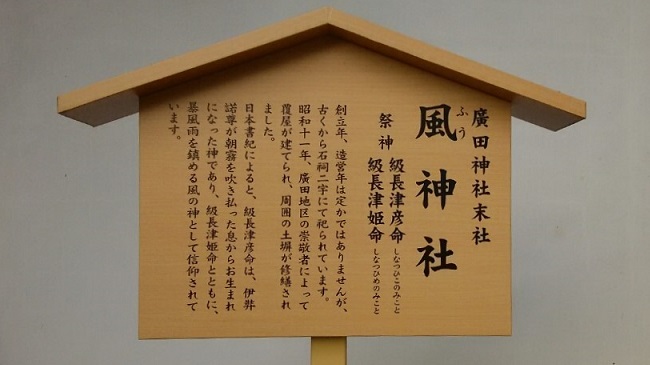 廣田神社末社
風神社
ふう
祭神
級長津彦命 しなつひこのみこと
級長津姫命 しなつひめのみこと
創立年、造営年は定かではありませんが、
古くから石祠二宇にて祀られています。
昭和十一年、廣田地区の崇敬者によって
覆屋が建てられ、周囲の土塀が修繕され
ました。
日本書紀によると、級長津彦命は、伊弉
諾尊が朝霧を吹き払った息からお生まれ
になった神であり、級長津姫命とともに、
暴風雨を鎮める風の神として信仰されて
います。